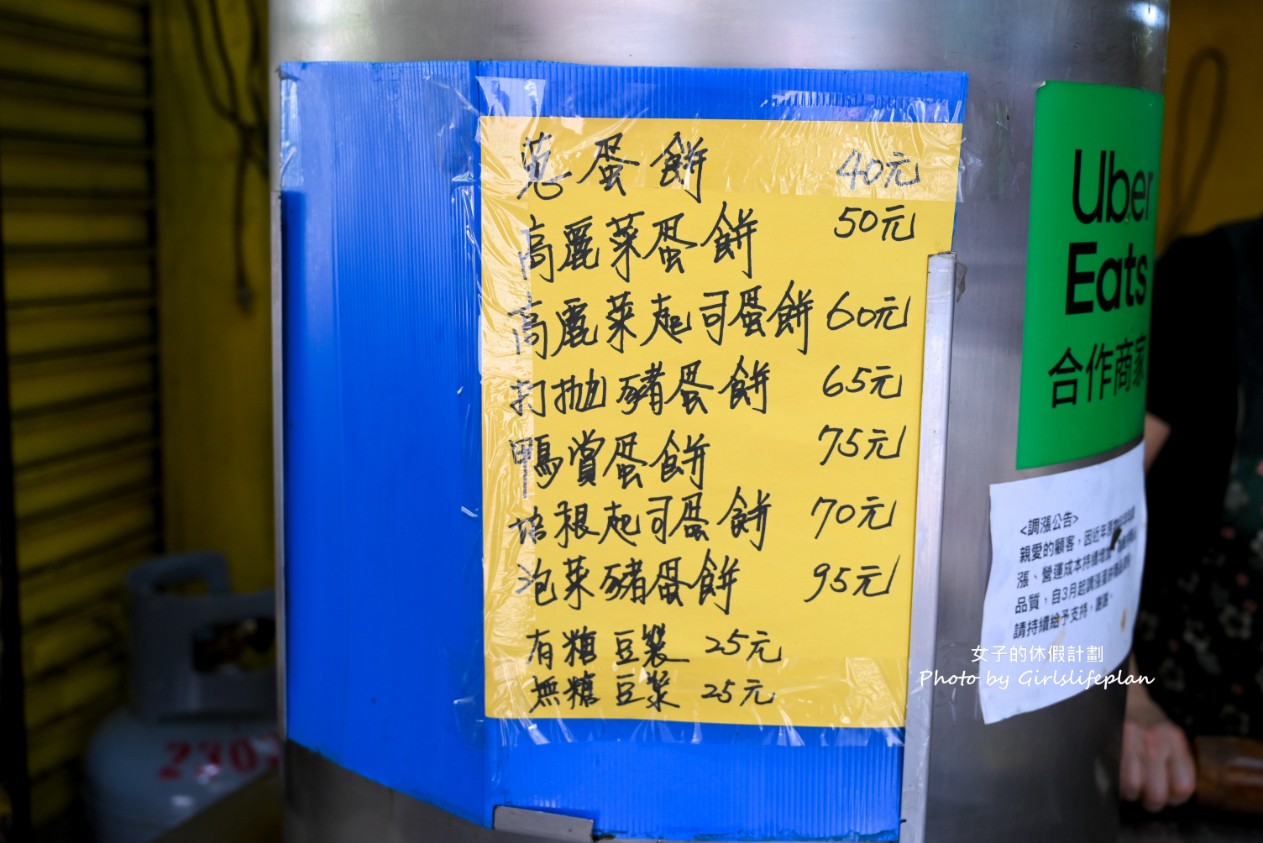 蔥蛋餅 40元
高麗菜蛋餅 50元
高麗菜起司蛋餅 60元
打抛豬蛋餅 65元
鴨賞蛋餅 75元
培根起司蛋餅 70元
泡菜豬蛋餅 95元
有糖豆漿 25元
無糖豆漿 25元
Uber
Eats
合作商家
<調漲公告>
親愛的顧客，因近年
漲、營運成本持續增
品質，自3月起調漲
請持續給予支持，謝謝。
女子的休假計劃
Photo by Girlslifeplan
2307